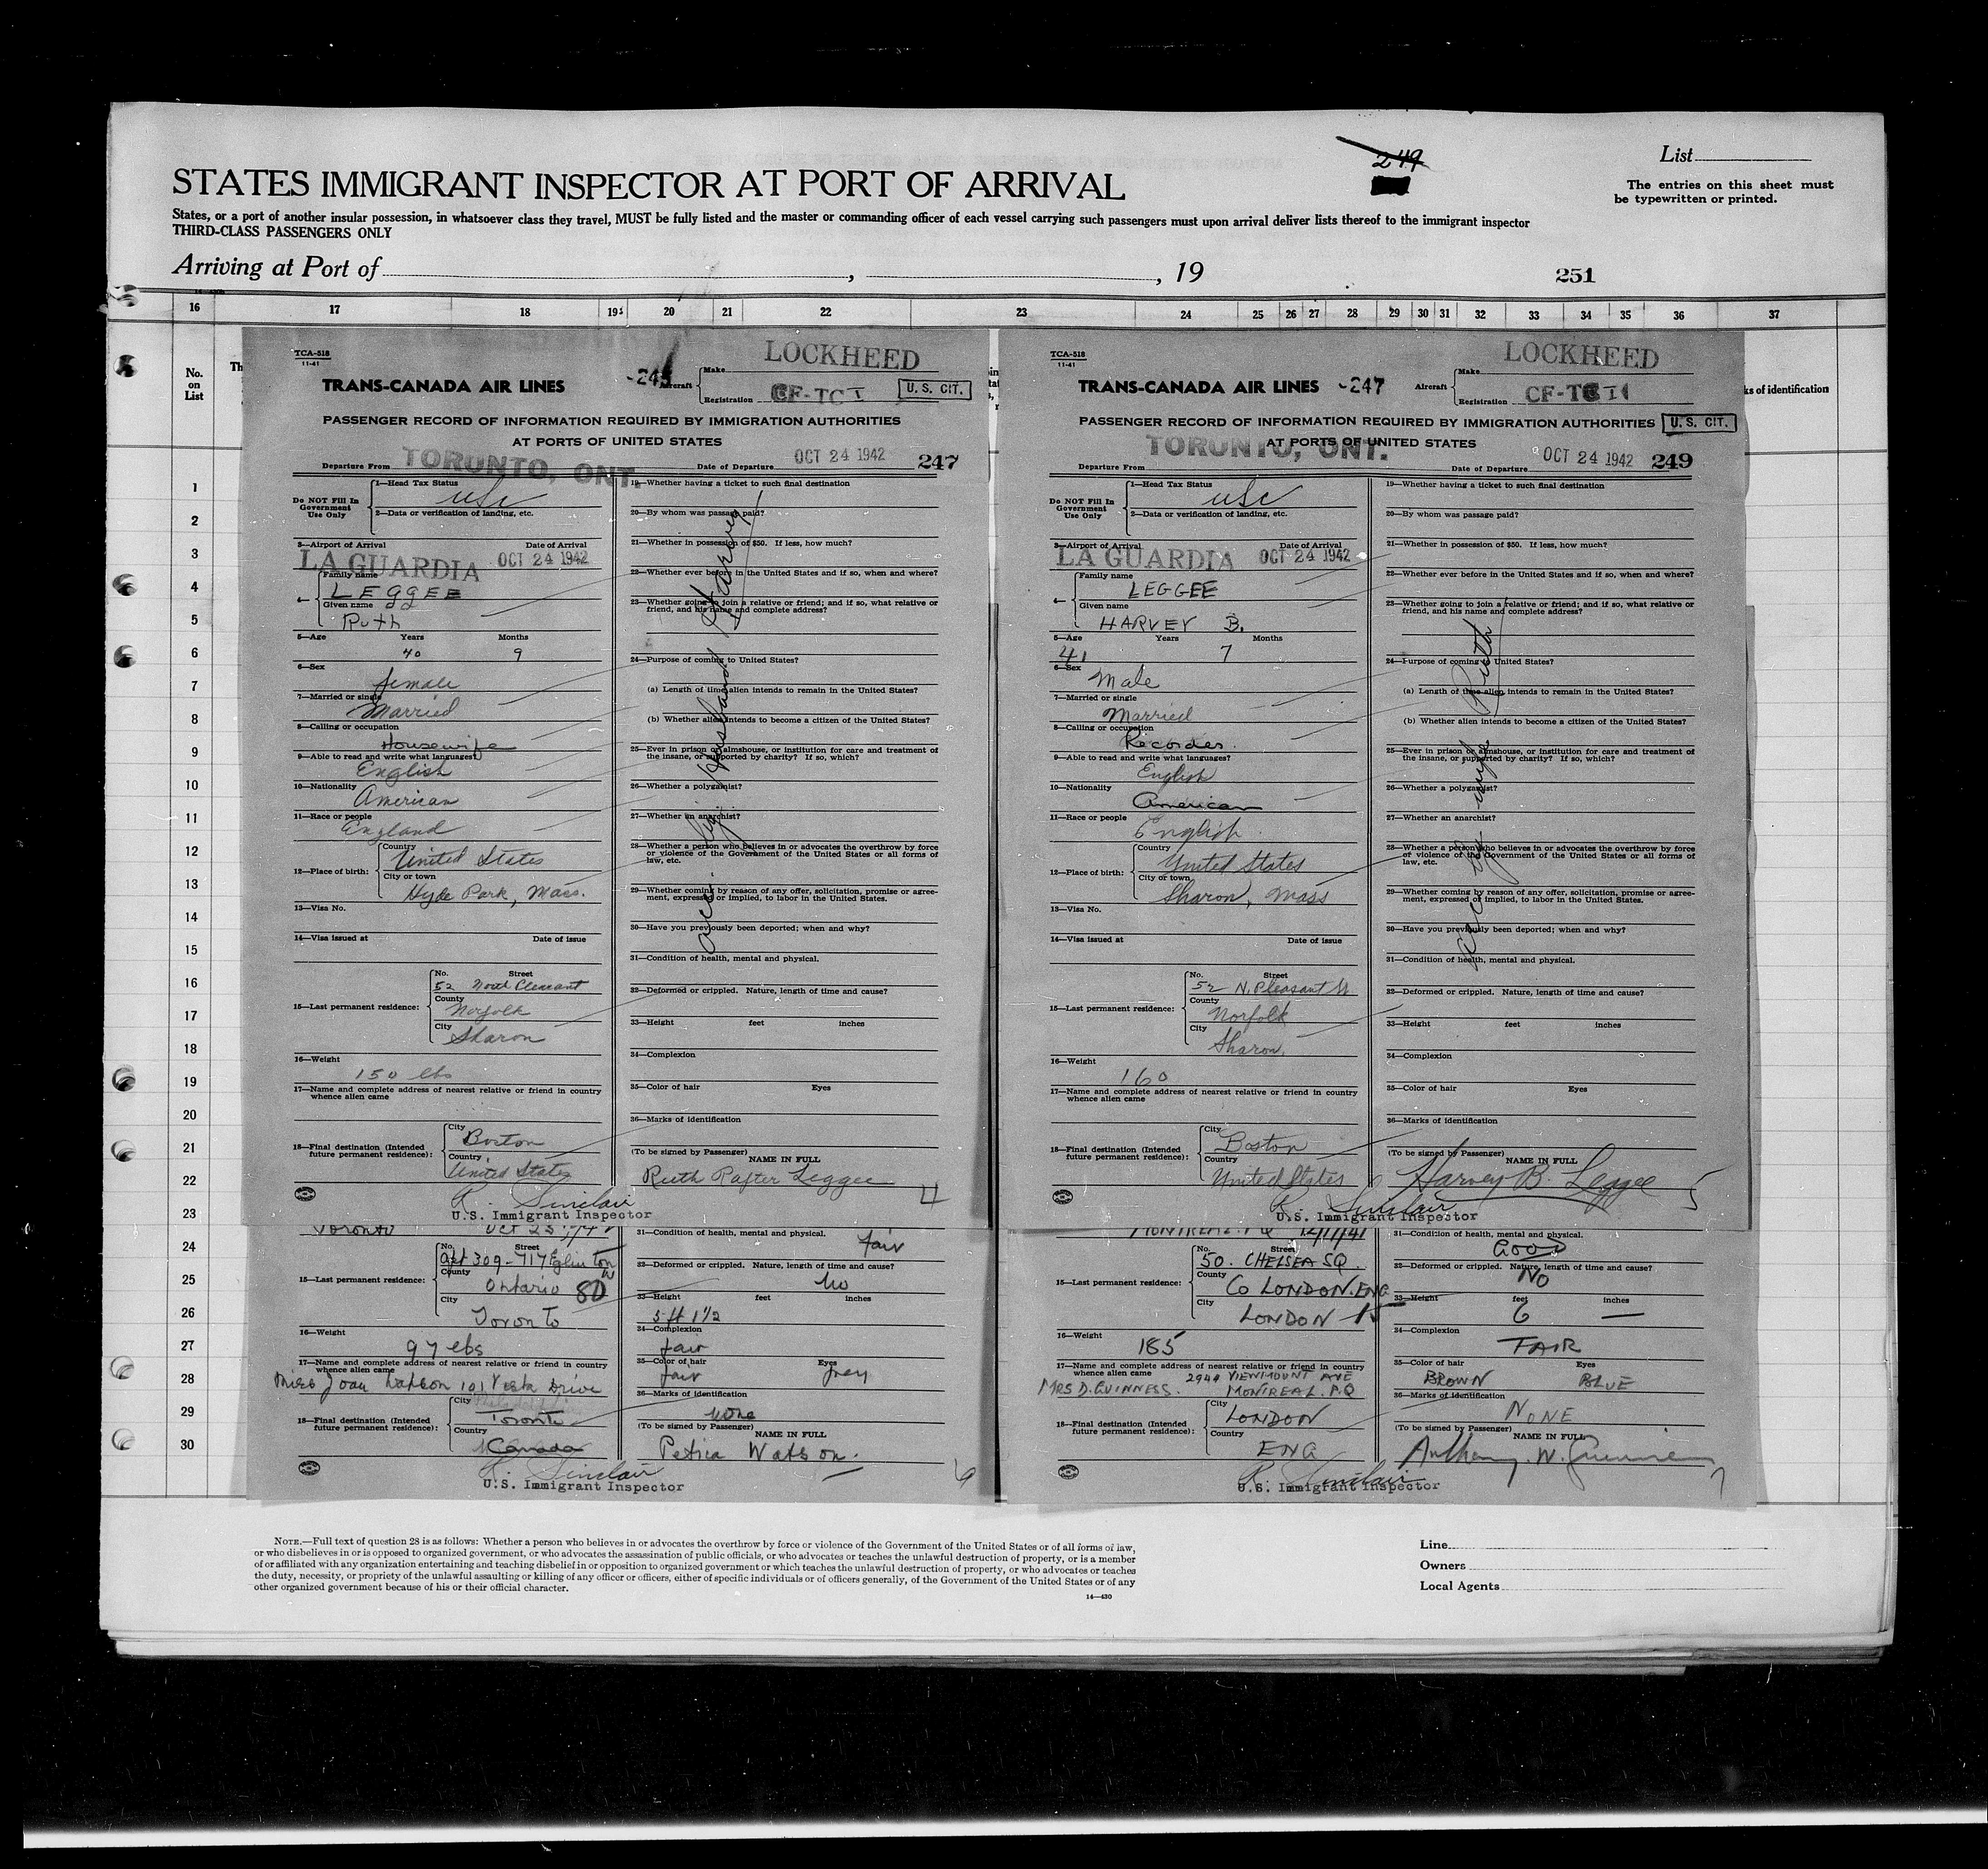 249
List
The entries on this sheet must
be typewritten or printed.
STATES IMMIGRANT INSPECTOR AT PORT OF ARRIVAL
States, or a port of another insular possession, in whatsoever class they travel, MUST be fully listed and the master or commanding officer of each vessel carrying such passengers must upon arrival deliver lists thereof to the immigrant inspector
THIRD-CLASS PASSENGERS ONLY
Arriving at Port of , , 19
251
16 17 18 19 20 21 22 23 24 25 26 27 28 29 30 31 32 33 34 35 36 37
No.
on
List
Th
ks of identification
1
2
3
4
5
6
7
8
9
10
11
12
13
14
15
16
17
18
19
20
21
22
23
24
25
26
27
28
29
30
TCA-518
11-41
LOCKHEED
TRANS-CANADA AIR LINES
Aircraft
Make
Registration CF-TCI
U. S. CIT.
PASSENGER RECORD OF INFORMATION REQUIRED BY IMMIGRATION AUTHORITIES
AT PORTS OF UNITED STATES
Departure From TORONTO, ONT.
Date of Departure OCT 24 1942
247
Do NOT Fill In
Government
Use Only
1—Head Tax Status
USC
2—Data or verification of landing, etc.
3—Airport of Arrival Date of Arrival
LA GUARDIA OCT 24 1942
4—
Family name
LEGGEE
Given name
Ruth
5—Age Years Months
40 9
6—Sex
female
7—Married or single
Married
8—Calling or occupation
Housewife
9—Able to read and write what languages?
English
10—Nationality
American
11—Race or people
England
12—Place of birth:
Country
United States
City or town
Hyde Park, Mass.
13—Visa No.
14—Visa issued at Date of issue
15—Last permanent residence:
No. Street
52 North
County
Norfolk
City
Sharon
16—Weight
150 lbs
17—Name and complete address of nearest relative or friend in country
whence alien came
18—Final destination (Intended
future permanent residence):
City
Boston
Country
United States
19—Whether having a ticket to such final destination
20—By whom was passage paid?
21—Whether in possession of $50. If less, how much?
22—Whether ever before in the United States and if so, when and where?
23—Whether going to join a relative or friend; and if so, what relative or
friend, and his name and complete address?
24—Purpose of coming to United States?
(a) Length of time alien intends to remain in the United States?
(b) Whether alien intends to become a citizen of the United States?
25—Ever in prison or almshouse, or institution for care and treatment of
the insane, or supported by charity? If so, which?
26—Whether a polygamist?
27—Whether an anarchist?
28—Whether a person who believes in or advocates the overthrow by force
or violence of the Government of the United States or all forms of
law, etc.
29—Whether coming by reason of any offer, solicitation, promise or agree-
ment, expressed or implied, to labor in the United States.
30—Have you previously been deported; when and why?
31—Condition of health, mental and physical.
32—Deformed or crippled. Nature, length of time and cause?
33—Height feet inches
34—Complexion
35—Color of hair Eyes
36—Marks of identification
(To be signed by Passenger)
NAME IN FULL
Ruth Rafter Leggee
4
acc. by husband Harvey
R. Sinclair
U.S. Immigrant Inspector
TCA-518
11-41
LOCKHEED
TRANS-CANADA AIR LINES
-247
Aircraft
Make
Registration CF-TCI
U. S. CIT.
PASSENGER RECORD OF INFORMATION REQUIRED BY IMMIGRATION AUTHORITIES
AT PORTS OF UNITED STATES
Departure From TORONTO, ONT.
Date of Departure OCT 24 1942
249
Do NOT Fill In
Government
Use Only
1—Head Tax Status
USC
2—Data or verification of landing, etc.
3—Airport of Arrival Date of Arrival
LA GUARDIA OCT 24 1942
4—
Family name
LEGGEE
Given name
HARVEY B.
5—Age Years Months
41 7
6—Sex
Male
7—Married or single
Married
8—Calling or occupation
Recorder
9—Able to read and write what languages?
English
10—Nationality
American
11—Race or people
English
12—Place of birth:
Country
United States
City or town
Sharon, Mass
13—Visa No.
14—Visa issued at Date of issue
15—Last permanent residence:
No. Street
52 N. Pleasant St
County
Norfolk
City
Sharon.
16—Weight
160
17—Name and complete address of nearest relative or friend in country
whence alien came
18—Final destination (Intended
future permanent residence):
City
Boston
Country
United States
19—Whether having a ticket to such final destination
20—By whom was passage paid?
21—Whether in possession of $50. If less, how much?
22—Whether ever before in the United States and if so, when and where?
23—Whether going to join a relative or friend; and if so, what relative or
friend, and his name and complete address?
24—Purpose of coming to United States?
(a) Length of time alien intends to remain in the United States?
(b) Whether alien intends to become a citizen of the United States?
25—Ever in prison or almshouse, or institution for care and treatment of
the insane, or supported by charity? If so, which?
26—Whether a polygamist?
27—Whether an anarchist?
28—Whether a person who believes in or advocates the overthrow by force
or violence of the Government of the United States or all forms of
law, etc.
29—Whether coming by reason of any offer, solicitation, promise or agree-
ment, expressed or implied, to labor in the United States.
30—Have you previously been deported; when and why?
31—Condition of health, mental and physical.
32—Deformed or crippled. Nature, length of time and cause?
33—Height feet inches
34—Complexion
35—Color of hair Eyes
36—Marks of identification
(To be signed by Passenger)
NAME IN FULL
Harvey B. Leggee
5
acc by wife Ruth
R. Sinclair
U.S. Immigrant Inspector
Toronto Oct 23
15—Last permanent residence:
No. Street
Apt 309-717 Eglinton W
County
Ontario 80
City
Toronto
16—Weight
97 lbs
17—Name and complete address of nearest relative or friend in country
whence alien came
Miss Joan Watson 101 Vesta Drive
18—Final destination (Intended
future permanent residence):
City
Toronto
Country
Canada
31—Condition of health, mental and physical.
fair
32—Deformed or crippled. Nature, length of time and cause?
No
33—Height feet inches
5 ft 1½
34—Complexion
fair
35—Color of hair Eyes
fair grey
36—Marks of identification
none
(To be signed by Passenger)
NAME IN FULL
Petria Watson.
6
R. Sinclair
U.S. Immigrant Inspector
MONTREAL. P.Q 12/11/41
15—Last permanent residence:
No. Street
50. CHELSEA SQ.
County
Co LONDON. ENG
City
LONDON 15
16—Weight
185
17—Name and complete address of nearest relative or friend in country
whence alien came
2940 VIEWMOUNT AVE
MRS D. GUINNESS. MONTREAL. P.Q
18—Final destination (Intended
future permanent residence):
City
LONDON
Country
ENG
31—Condition of health, mental and physical.
GOOD
32—Deformed or crippled. Nature, length of time and cause?
NO
33—Height feet inches
6 —
34—Complexion
FAIR
35—Color of hair Eyes
BROWN BLUE
36—Marks of identification
NONE
(To be signed by Passenger)
NAME IN FULL
Anthony. W. Guinness
7
R. Sinclair
U.S. Immigrant Inspector
NOTE.—Full text of question 28 is as follows: Whether a person who believes in or advocates the overthrow by force or violence of the Government of the United States or of all forms of law,
or who disbelieves in or is opposed to organized government, or who advocates the assassination of public officials, or who advocates or teaches the unlawful destruction of property, or is a member
of or affiliated with any organization entertaining and teaching disbelief in or opposition to organized government or which teaches the unlawful destruction of property, or who advocates or teaches
the duty, necessity, or propriety of the unlawful assaulting or killing of any officer or officers, either of specific individuals or of officers generally, of the Government of the United States or of any
other organized government because of his or their official character.
14—430
Line
Owners
Local Agents